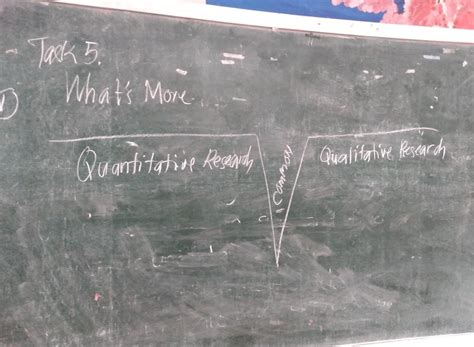 Task 5.
What's More
Quantitative Research
Common
Qualitative Research